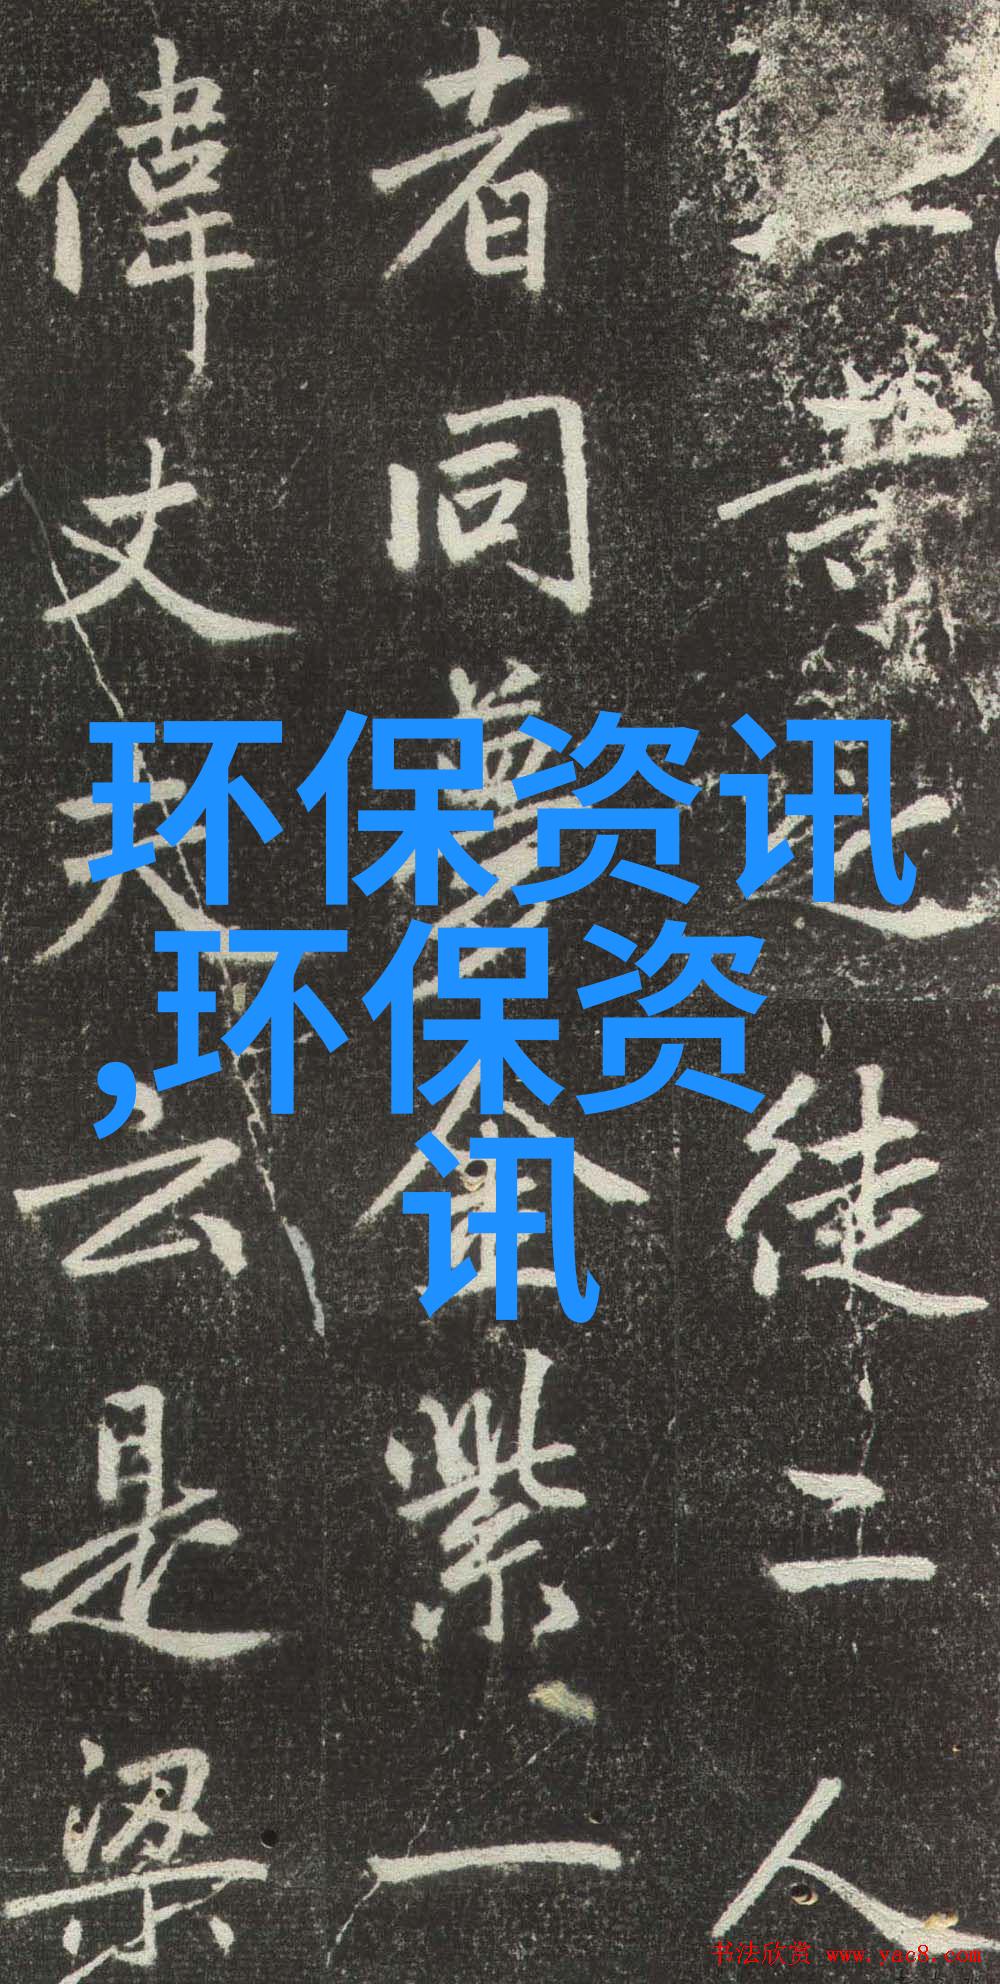 环保资讯
,环保资
讯
業之徒二人
者同夢金紫一
偉丈夫云是梁
书法欣赏 www.yac8.com